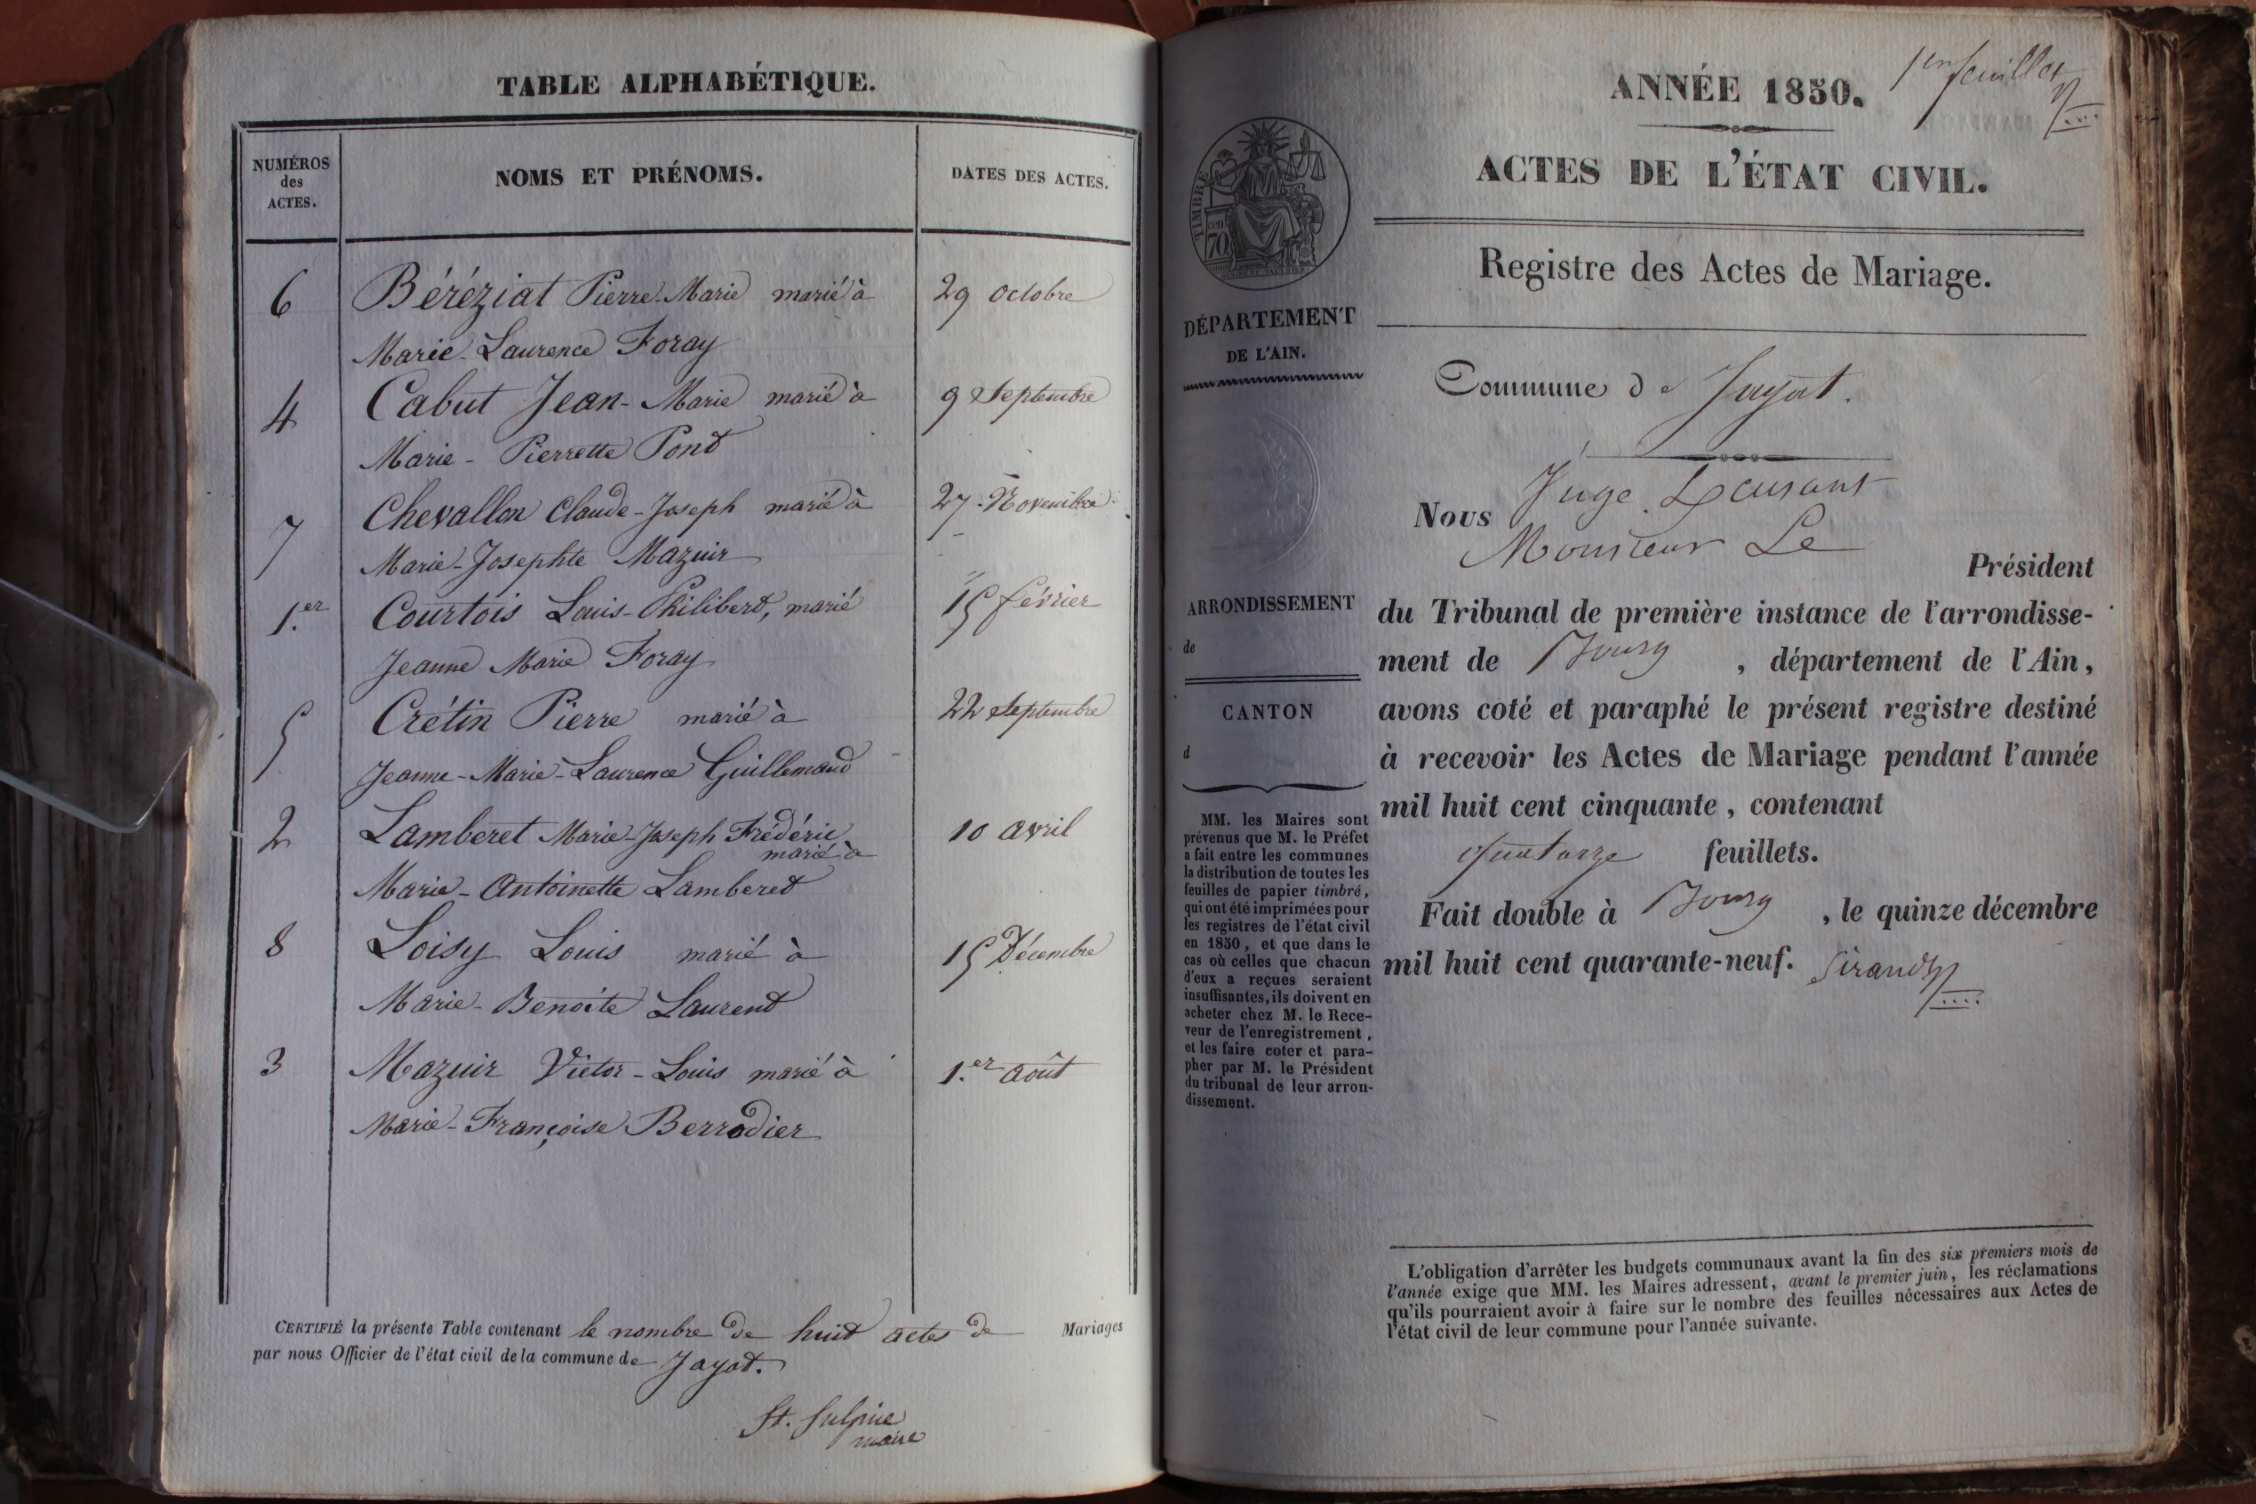 TABLE ALPHABÉTIQUE.
NUMÉROS des ACTES.
NOMS ET PRÉNOMS.
DATES DES ACTES.
6 Béréziat Pierre-Marie marié à 29 octobre
Marie-Laurence Foray
4 Cabut Jean-Marie marié à 9 Septembre
Marie-Pierrette Pont
7 Chevallon Claude-Joseph marié à 27 Novembre
Marie-Josephte Mazuir
1.er Courtois Louis-Philibert, marié 15 février
Jeanne Marie Foray
5 Crétin Pierre marié à 22 Septembre
Jeanne-Marie-Laurence Guillemaud
2 Lamberet Marie-Joseph Frédéric 10 avril
marié à
Marie-Antoinette Lamberet
8 Loisy Louis marié à 15 Décembre
Marie-Benoite Laurent
3 Mazuir Victor-Louis marié à 1.er août
Marie-Françoise Berrodier
CERTIFIÉ la présente Table contenant le nombre de huit actes de Mariages
par nous Officier de l'état civil de la commune de Jayat.
St. Sulpice
maire
1er feuillet
ANNÉE 1850.
ACTES DE L'ÉTAT CIVIL.
Registre des Actes de Mariage.
TIMBRE
70
DÉPARTEMENT
DE L'AIN.
ARRONDISSEMENT
de
CANTON
d
MM. les Maires sont
prévenus que M. le Préfet
a fait entre les communes
la distribution de toutes les
feuilles de papier timbré,
qui ont été imprimées pour
les registres de l'état civil
en 1850, et que dans le
cas où celles que chacun
d'eux a reçues seraient
insuffisantes, ils doivent en
acheter chez M. le Rece-
veur de l'enregistrement,
et les faire coter et para-
pher par M. le Président
du tribunal de leur arron-
dissement.
Commune de Jayat.
Nous Juge
Monsieur Le
Président
du Tribunal de première instance de l'arrondisse-
ment de Bourg, département de l'Ain,
avons coté et paraphé le présent registre destiné
à recevoir les Actes de Mariage pendant l'année
mil huit cent cinquante, contenant
quatorze feuillets.
Fait double à Bourg, le quinze décembre
mil huit cent quarante-neuf.
L'obligation d'arrêter les budgets communaux avant la fin des six premiers mois de
l'année exige que MM. les Maires adressent, avant le premier juin, les réclamations
qu'ils pourraient avoir à faire sur le nombre des feuilles nécessaires aux Actes de
l'état civil de leur commune pour l'année suivante.